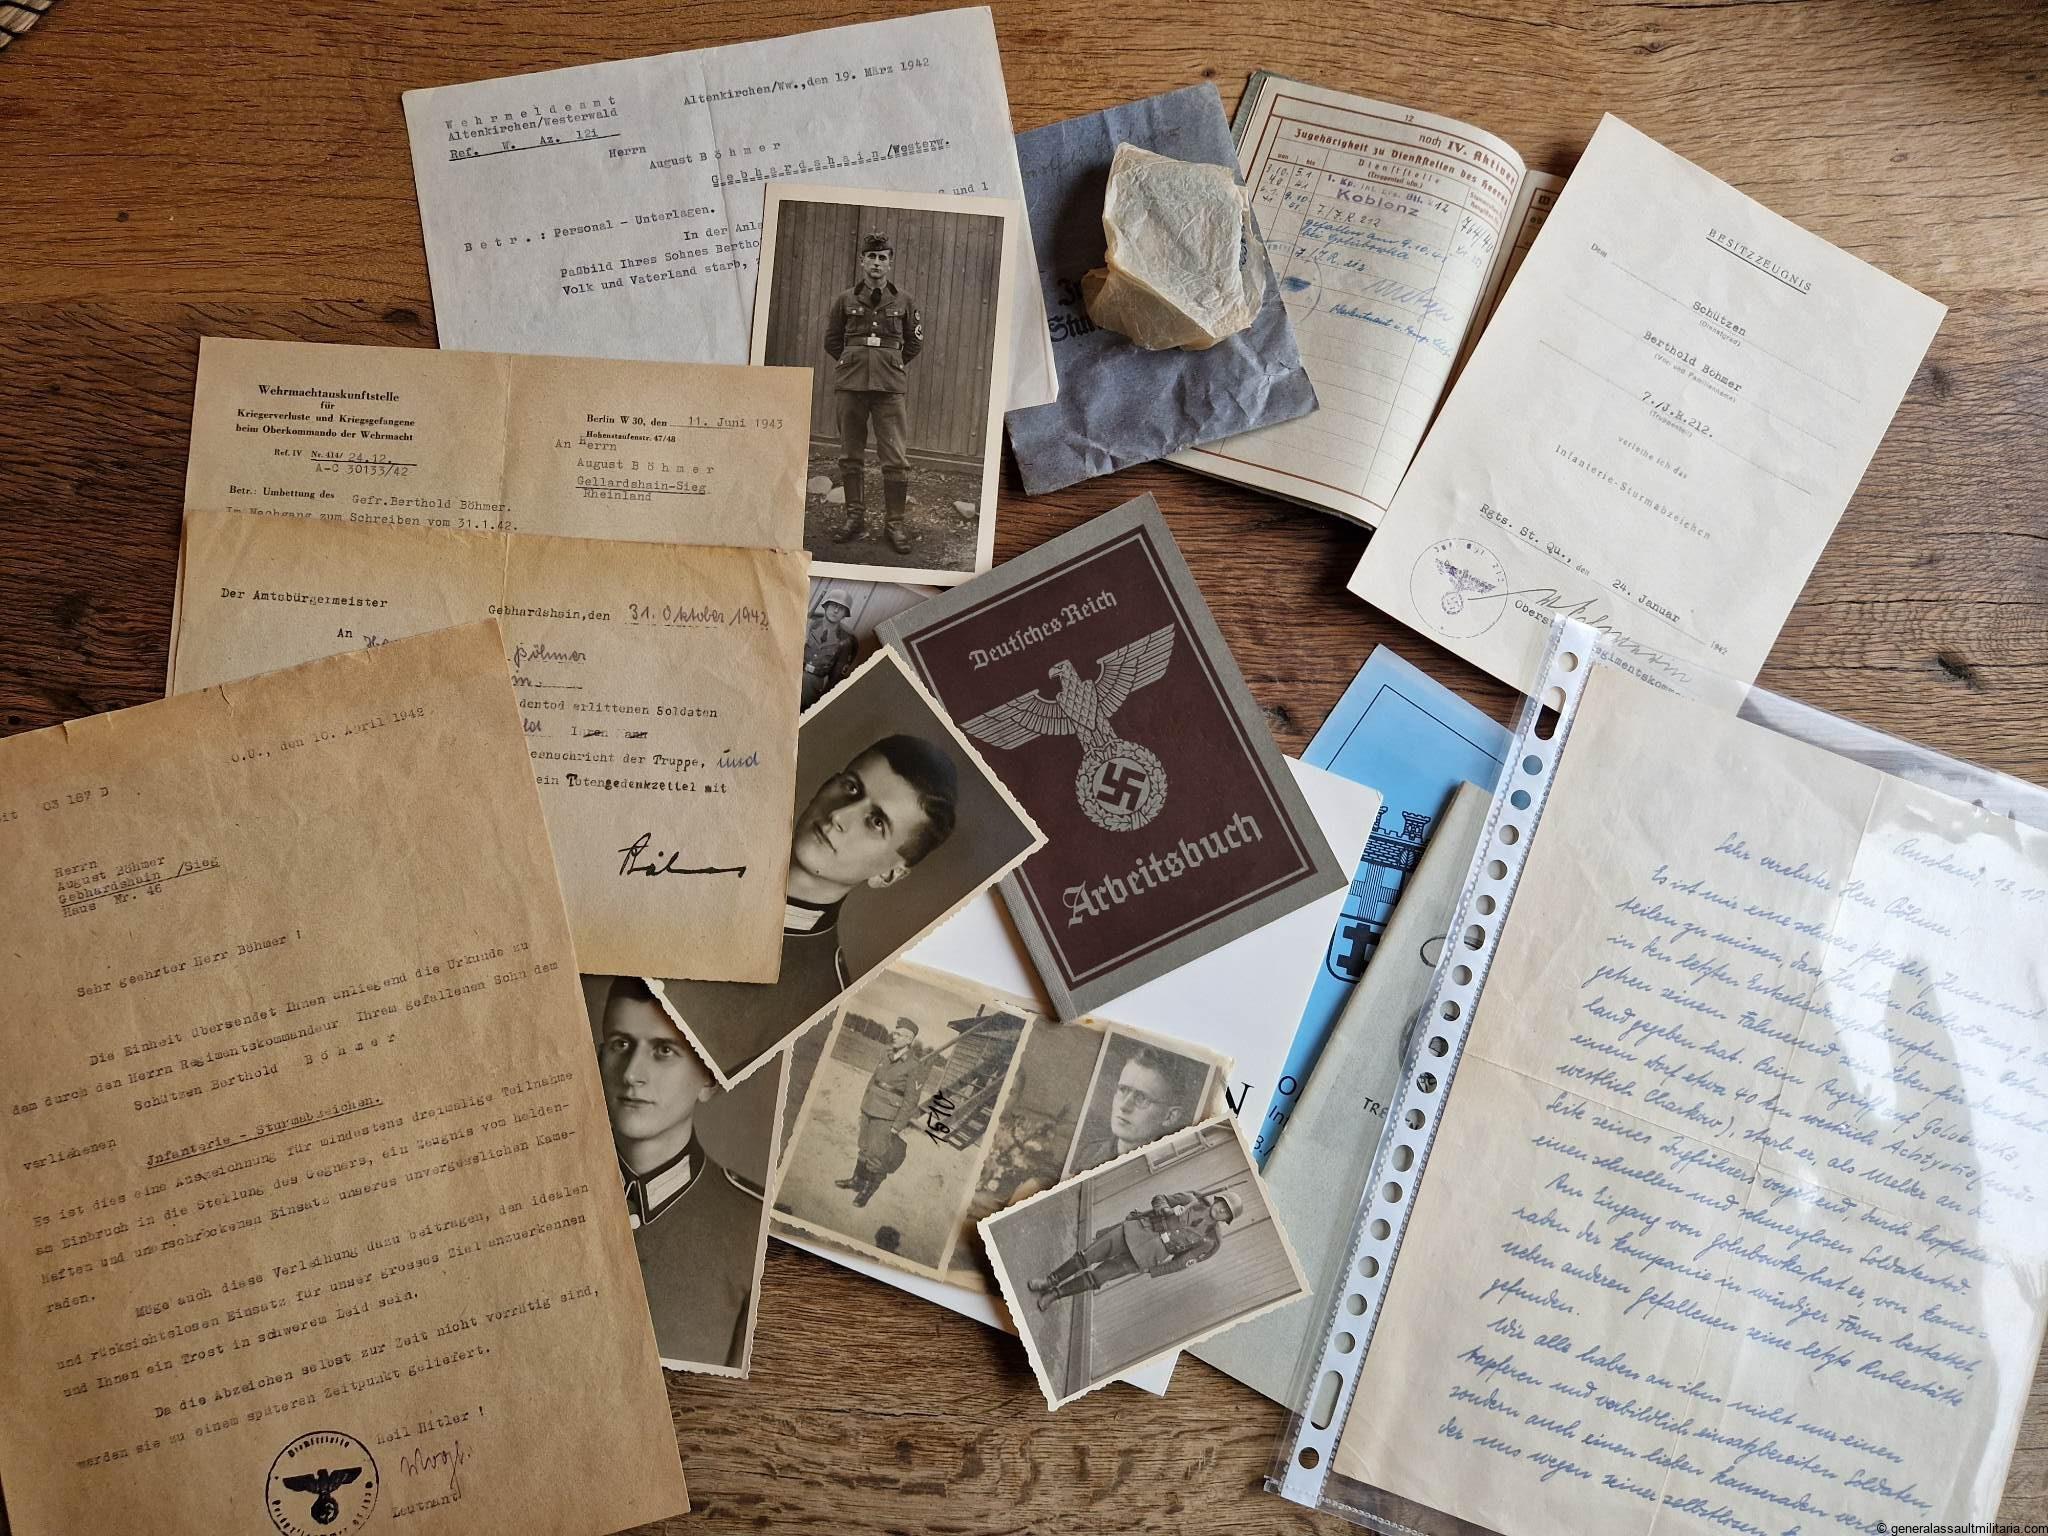 Wehrmeldeamt
Altenkirchen/Westerwald
Ref. W. Az. 12i
Altenkirchen/Ww.,den 19. März 1942
Herrn
August Böhmer
Gebhardshain/Westerw.
und 1
Betr.: Personal - Unterlagen.
In der Anla
Paßbild Ihres Sohnes Bertho
Volk und Vaterland starb,
Wehrmachtauskunftstelle
für
Kriegerverluste und Kriegsgefangene
beim Oberkommando der Wehrmacht
Ref. IV Nr. 414/ 24.12.
A-C 30133/42
Berlin W 30, den 11. Juni 1943
Hohenstaufenstr. 47/48
An Herrn
August Böhmer
Gellardshain-Sieg
Rheinland
Betr.: Umbettung des Gefr.Berthold Böhmer.
Im Nachgang zum Schreiben vom 31.1.42.
Der Amtsbürgermeister
Gebhardshain,den 31. Oktober 1942
An
Böhmer
dentod erlittenen Soldaten
Ihren
enschricht der Truppe, und
ein Totengedenkzettel mit
O.U., den 10. April 1942
03 187 D
Herrn
August Böhmer
Gebhardshain /Sieg
Haus Nr. 46
Sehr geehrter Herr Böhmer !
Die Einheit übersendet Ihnen anliegend die Urkunde zu
dem durch den Herrn Regimentskommandeur Ihrem gefallenen Sohn dem
Schützen Berthold Böhmer
verliehenen Jnfanterie - Sturmabzeichen.
Es ist dies eine Auszeichnung für mindestens dreimalige Teilnahme
am Einbruch in die Stellung des Gegners, ein Zeugnis vom helden-
haften und unerschrockenen Einsatz unseres unvergesslichen Kame-
raden.
Möge auch diese Verleihung dazu beitragen, den idealen
und rücksichtslosen Einsatz für unser grosses Ziel anzuerkennen
und Ihnen ein Trost in schwerem Leid sein.
Da die Abzeichen selbst zur Zeit nicht vorrätig sind,
werden sie zu einem späteren Zeitpunkt geliefert.
Heil Hitler !
Leutnant
12
noch IV. Aktiver
Zugehörigkeit zu Dienststellen des Heeres
von
bis
Dienststelle
(Truppenteil usw.)
Koblenz
7./J.R. 212
gefallen am 9.10.41
bei Golubowka
7./J.R. 212
BESITZZEUGNIS
Dem
Schützen
(Dienstgrad)
Berthold Böhmer
(Vor- und Familienname)
7./J.R.212.
(Truppenteil)
verleihe ich das
Infanterie-Sturmabzeichen
Rgts. St. Qu., den 24. Januar 1942
Oberst
Regimentskomm
Deutsches Reich
Arbeitsbuch
1510
N
TRE
Russland, 13.10.
Sehr verehrter Herr Böhmer!
Es ist mir eine schwere Pflicht, Ihnen mit-
teilen zu müssen, dass Ihr Sohn Berthold am 9.
in den letzten Entscheidungskämpfen im Osten
getreu seinem Fahneneid sein Leben für Deutsch-
land gegeben hat. Beim Angriff auf Golubowka,
einem Dorf etwa 40 km westlich Achtyrka (nord-
westlich Charkow), starb er, als Melder an der
Seite seines Zugführers vorgehend, durch Kopfschuss
einen schnellen und schmerzlosen Soldatentod.
Am Eingang von Golubowka hat er, von Kame-
raden der Kompanie in würdiger Form bestattet,
neben anderen Gefallenen seine letzte Ruhestätte
gefunden.
Wir alle haben an ihm nicht nur einen
tapferen und vorbildlich einsatzbereiten Soldaten,
sondern auch einen lieben Kameraden verlo
der uns wegen seiner selbstlosen
© generalassaultmilitaria.com